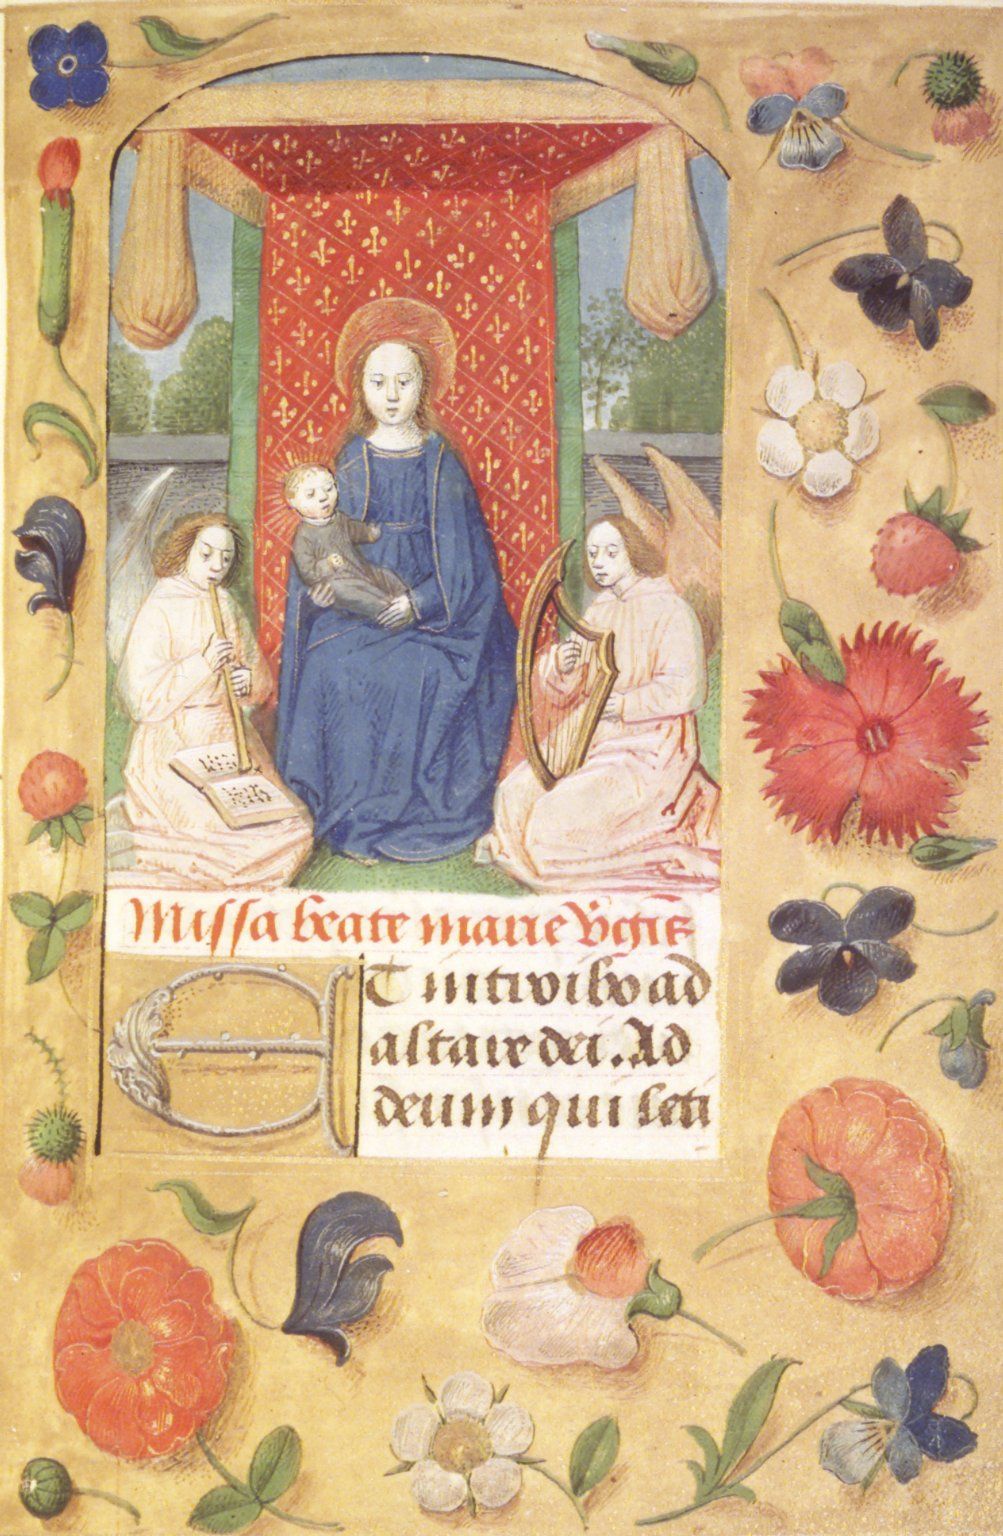 Missa beate marie v̾gīs
ET introibo ad
altare dei. Ad
deum qui leti